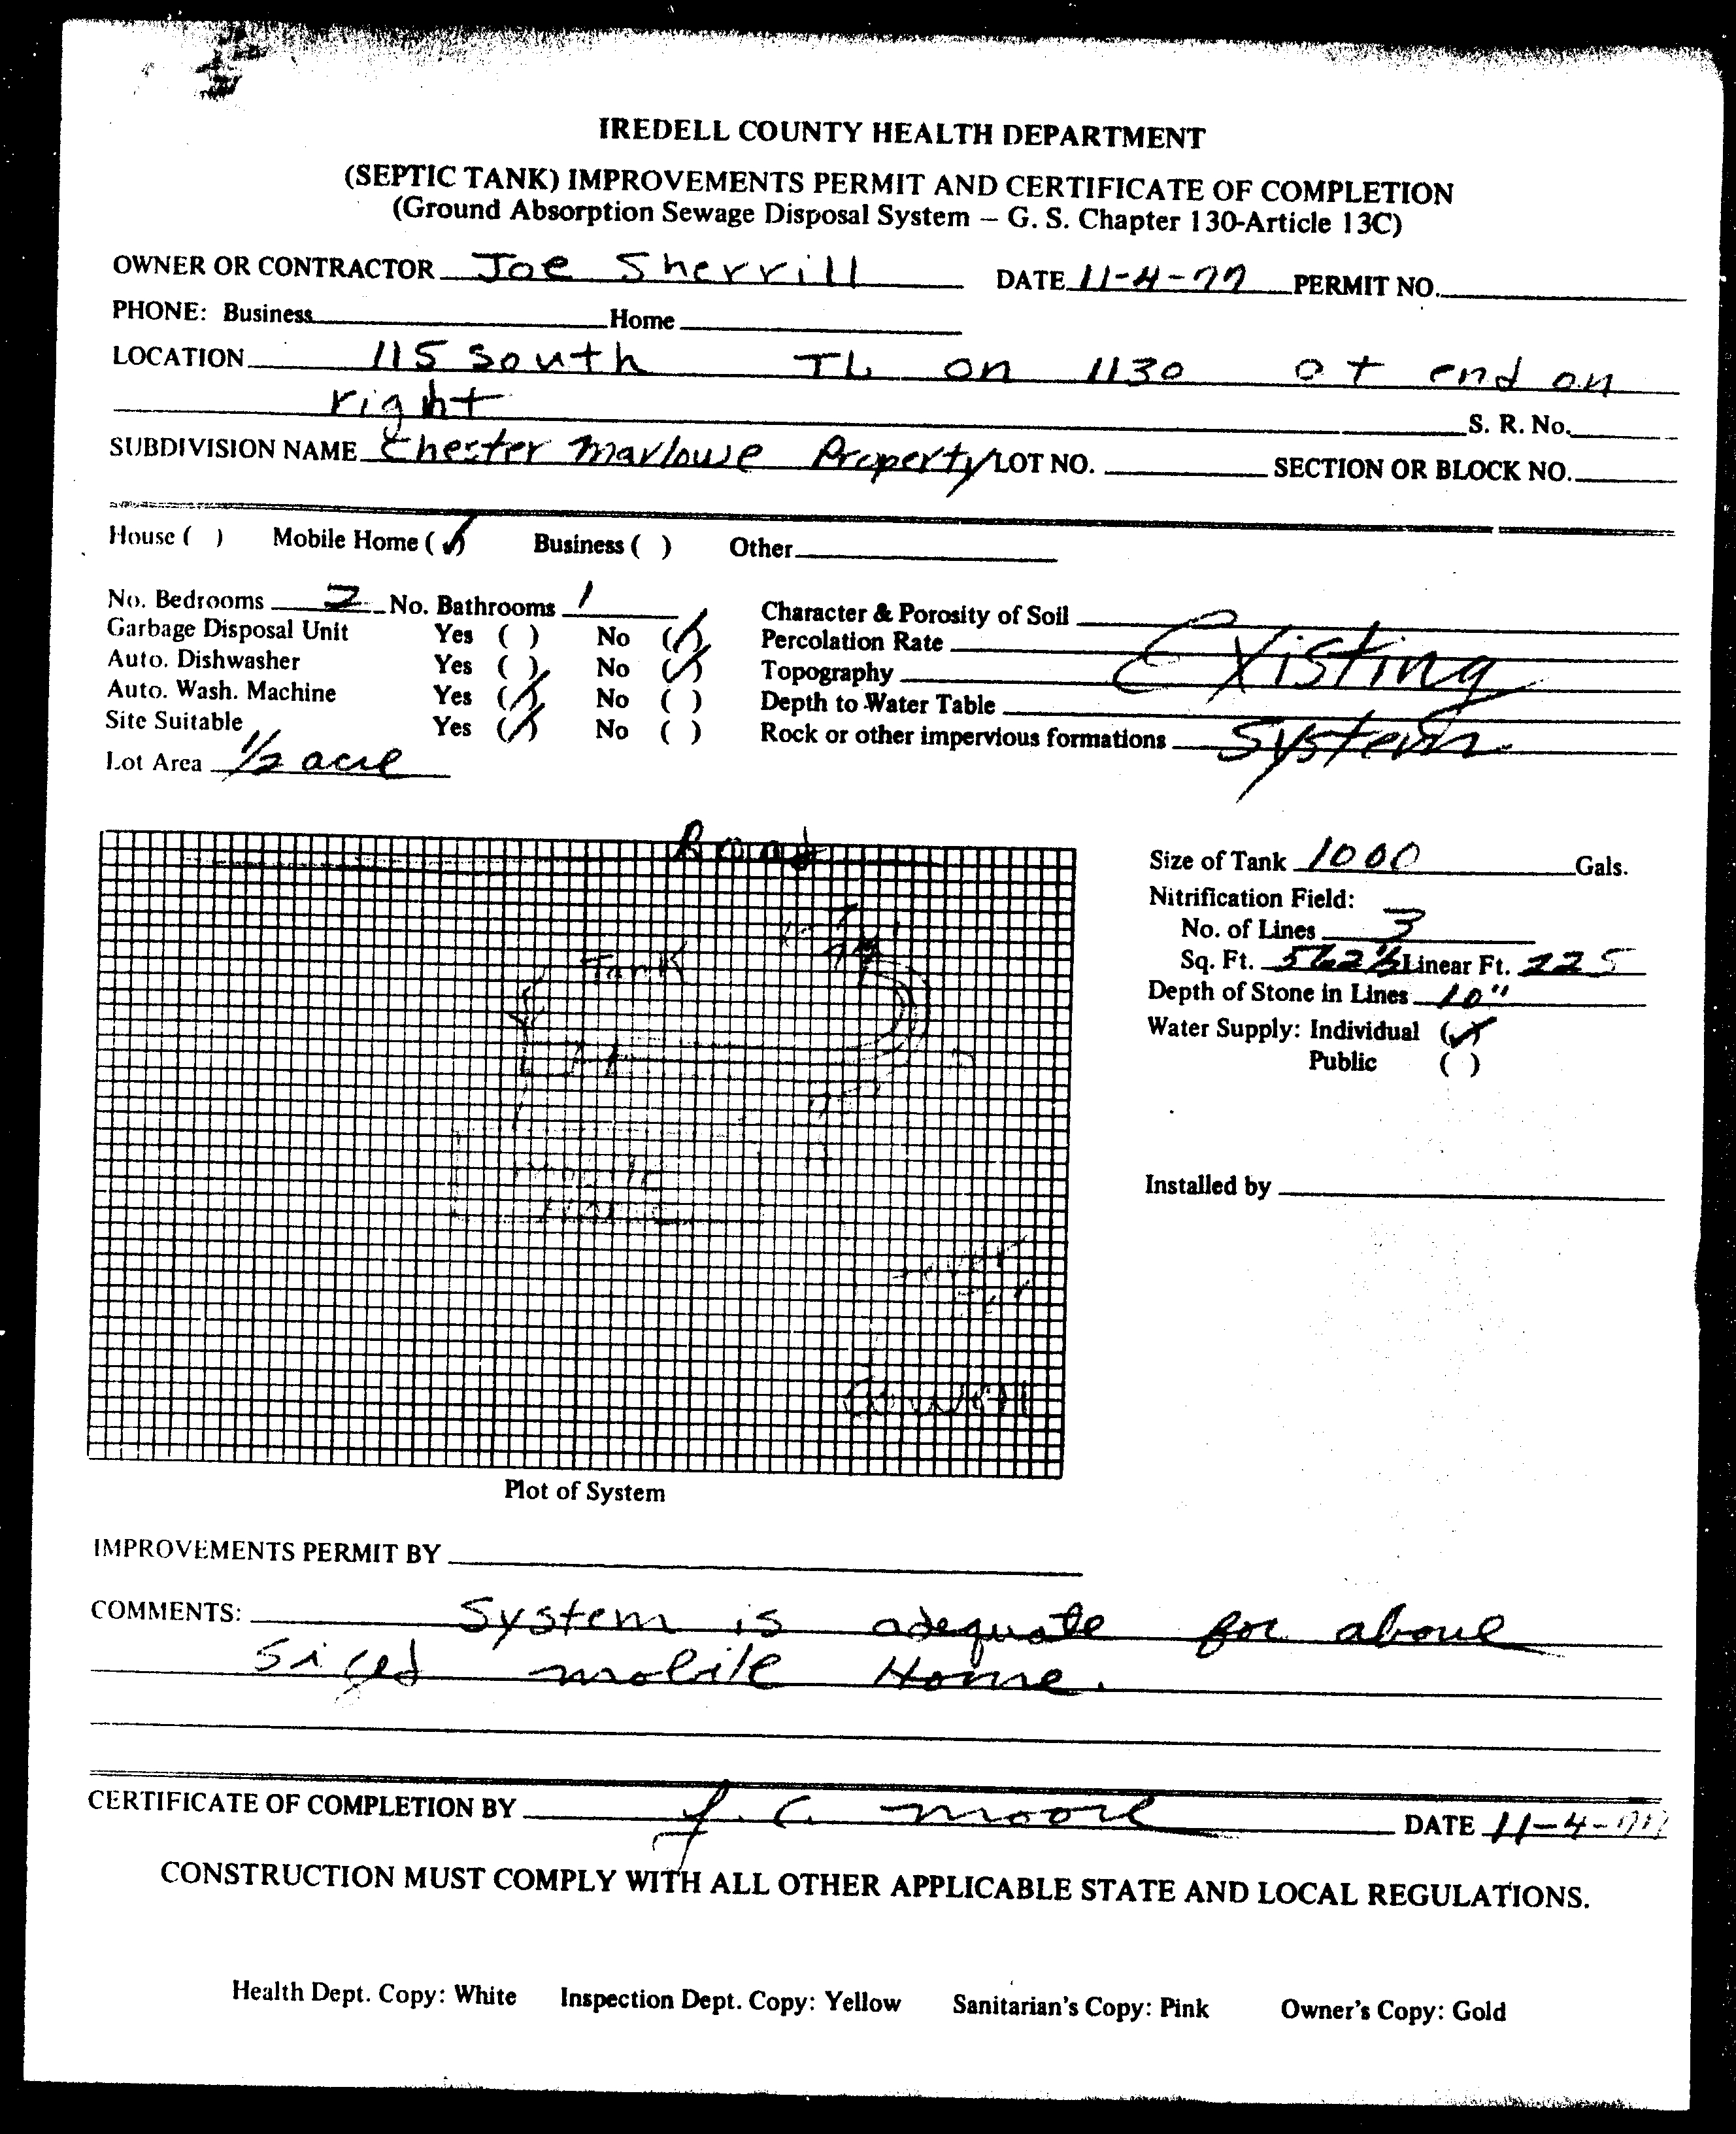 IREDELL COUNTY HEALTH DEPARTMENT
(SEPTIC TANK) IMPROVEMENTS PERMIT AND CERTIFICATE OF COMPLETION
(Ground Absorption Sewage Disposal System – G. S. Chapter 130-Article 13C)
OWNER OR CONTRACTOR Joe Sherrill DATE 11-4-77 PERMIT NO.
PHONE: Business Home
LOCATION 115 South TL on 1130 at end on
right S. R. No.
SUBDIVISION NAME Chester Marlowe Property LOT NO. SECTION OR BLOCK NO.
House ( ) Mobile Home (✓) Business ( ) Other
No. Bedrooms 2 No. Bathrooms 1 Character & Porosity of Soil
Garbage Disposal Unit Yes ( ) No (✓) Percolation Rate Existing
Auto. Dishwasher Yes ( ) No (✓) Topography
Auto. Wash. Machine Yes (✓) No ( ) Depth to Water Table
Site Suitable Yes (✓) No ( ) Rock or other impervious formations System
Lot Area 1/2 acre
Road
Size of Tank 1000 Gals.
Nitrification Field:
No. of Lines 3
Tank
Sq. Ft. 562 1/2 Linear Ft. 225
Depth of Stone in Lines 10"
Water Supply: Individual (✓)
Public ( )
Mobile
Home
Installed by
Well
Plot of System
IMPROVEMENTS PERMIT BY
COMMENTS: System is adequate for above
Sized mobile Home.
CERTIFICATE OF COMPLETION BY J. C. Moore DATE 11-4-77
CONSTRUCTION MUST COMPLY WITH ALL OTHER APPLICABLE STATE AND LOCAL REGULATIONS.
Health Dept. Copy: White Inspection Dept. Copy: Yellow Sanitarian's Copy: Pink Owner's Copy: Gold